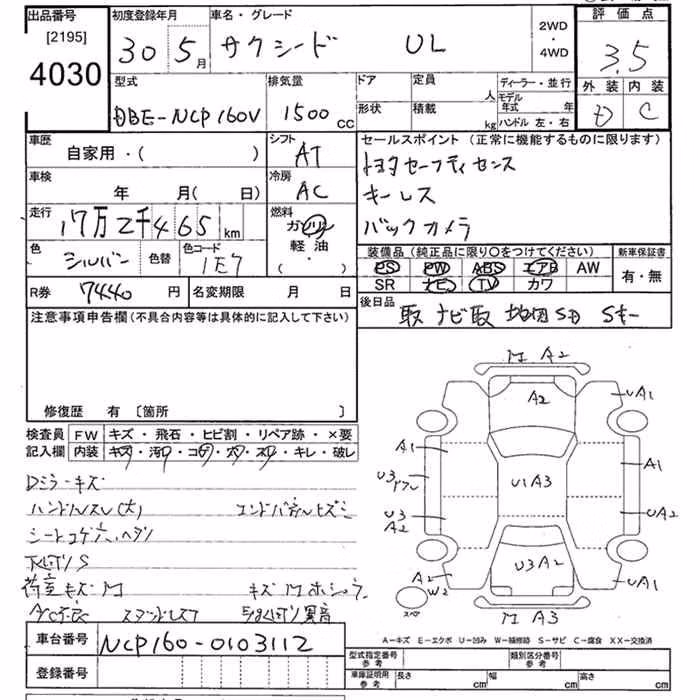 出品番号
[2195]
4030
初度登録年月
30 5月
車名・グレード
サクシード UL
2WD
・
4WD
評価点
3.5
外装 内装
D C
型式
DBE-NCP160V
排気量
1500 cc
ドア
形状
定員 人
積載 kg
ディーラー・並行
モデル
年式 年
ハンドル 左・右
車歴
自家用・( )
シフト
AT
セールスポイント (正常に機能するものに限ります)
トヨタセーフティセンス
キーレス
バックカメラ
車検
年 月( 日)
冷房
AC
走行
17万2千465 km
燃料
ガソリン
軽油
( ・ )
色
シルバー
色替
色コード
1E7
装備品 (純正品に限り○をつけてください)
PS PW ABS エアB AW
SR ナビ TV カワ
新車保証書
有・無
R券 7440 円
名変期限 月 日
後日品
取 ナビ取 地図SD Sキー
注意事項申告欄(不具合内容等は具体的に記入して下さい)
修復歴 有 〔箇所 〕
検査員
記入欄
FW キズ・飛石・ヒビ割・リペア跡・×要
内装 キズ・汚れ・コゲ・穴・スレ・キレ・破レ
Dミラーキズ
ハンドルスレ(大) エンドパネルヒズミ
シートコゲ穴、ヘタリ
下回りS
荷室キズM
M A2
A2
UA1
UA1
A1
A1
U1A3
U3
U3
A2
UA2
U3A2
A2
W2
M A3
スペア
A-キズ E-エクボ U-凹み W-補修跡 S-サビ C-腐食 XX-交換済
車台番号 NCP160-0103112
登録番号
型式指定番号
参考
類別区分番号
参考
車庫証明用
参考
長さ cm
幅 cm
高さ cm